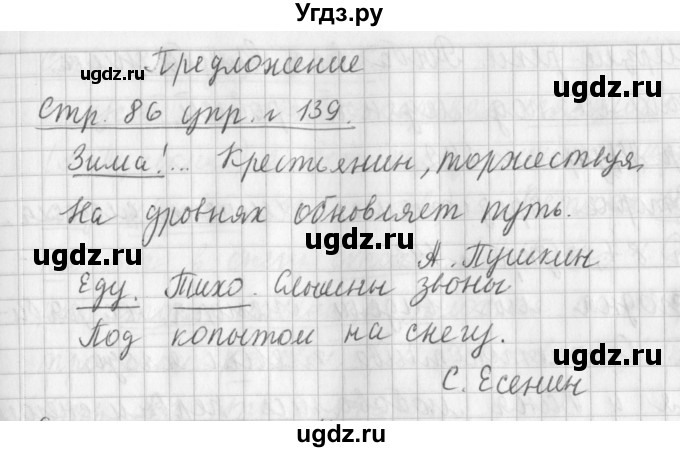 Угдз.ру
Предложение
Стр. 86 упр. г 139.
Зима!... Крестьянин, торжествуя,
На дровнях обновляет путь.
А. Пушкин
Еду. Тихо. Слышны звоны
Под копытом на снегу.
С. Есенин
ugdz.ru
ugdz.ru
ugdz.ru
ugdz.ru
ugdz.ru
ugdz.ru
ugdz.ru
ugdz.ru